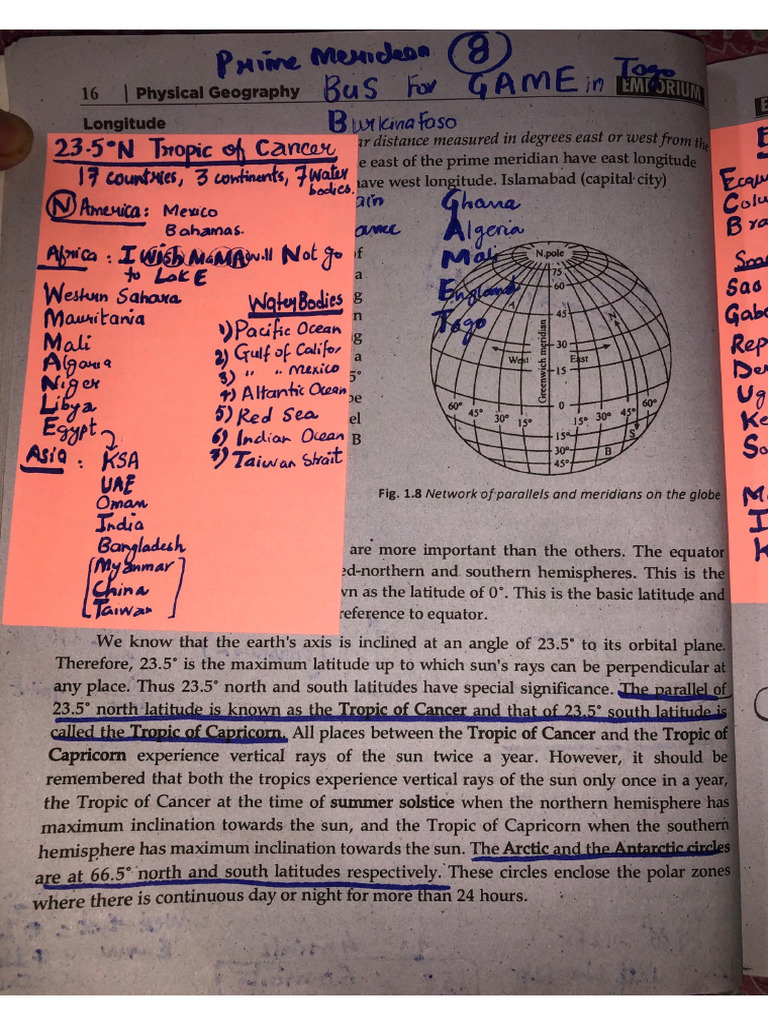 Prime Meridean 8
BUS for GAME in Togo
16 | Physical Geography
EMPORIUM
Longitude
Burkina Faso
ar distance measured in degrees east or west from the
e east of the prime meridian have east longitude
ave west longitude. Islamabad (capital city)
ain
Ghana
Algeria
Mali
England
Togo
23.5°N Tropic of Cancer
17 countries, 3 continents, 7 water
bodies.
N America: Mexico
Bahamas.
Africa: I Wish MaMA will Not go
to LakE
Western Sahara
Mauritania
Mali
Algaria
Niger
Libya
Egypt
Asia: KSA
UAE
Oman
India
Bangladesh
Myanmar
China
Taiwan
Water Bodies
1) Pacific Ocean
2) Gulf of Califor
3) " " Mexico
4) Altantic Ocean
5) Red Sea
6) Indian Ocean
7) Taiwan Strait
N.pole
75
60
45
30
15
0
15°
30°
45°
West
East
Greenwich meridian
60° 45° 30° 15° 15° 30° 45° 60°
A
N
S
B
Fig. 1.8 Network of parallels and meridians on the globe
are more important than the others. The equator
ed-northern and southern hemispheres. This is the
vn as the latitude of 0°. This is the basic latitude and
reference to equator.
We know that the earth's axis is inclined at an angle of 23.5° to its orbital plane.
Therefore, 23.5° is the maximum latitude up to which sun's rays can be perpendicular at
any place. Thus 23.5° north and south latitudes have special significance. The parallel of
23.5° north latitude is known as the Tropic of Cancer and that of 23.5° south latitude is
called the Tropic of Capricorn. All places between the Tropic of Cancer and the Tropic of
Capricorn experience vertical rays of the sun twice a year. However, it should be
remembered that both the tropics experience vertical rays of the sun only once in a year,
the Tropic of Cancer at the time of summer solstice when the northern hemisphere has
maximum inclination towards the sun, and the Tropic of Capricorn when the southern
hemisphere has maximum inclination towards the sun. The Arctic and the Antarctic circles
are at 66.5° north and south latitudes respectively. These circles enclose the polar zones
where there is continuous day or night for more than 24 hours.
Ecqu
Colu
Bra
Sao
Gabo
Rep
De
Ug
Ke
So
M
I
K